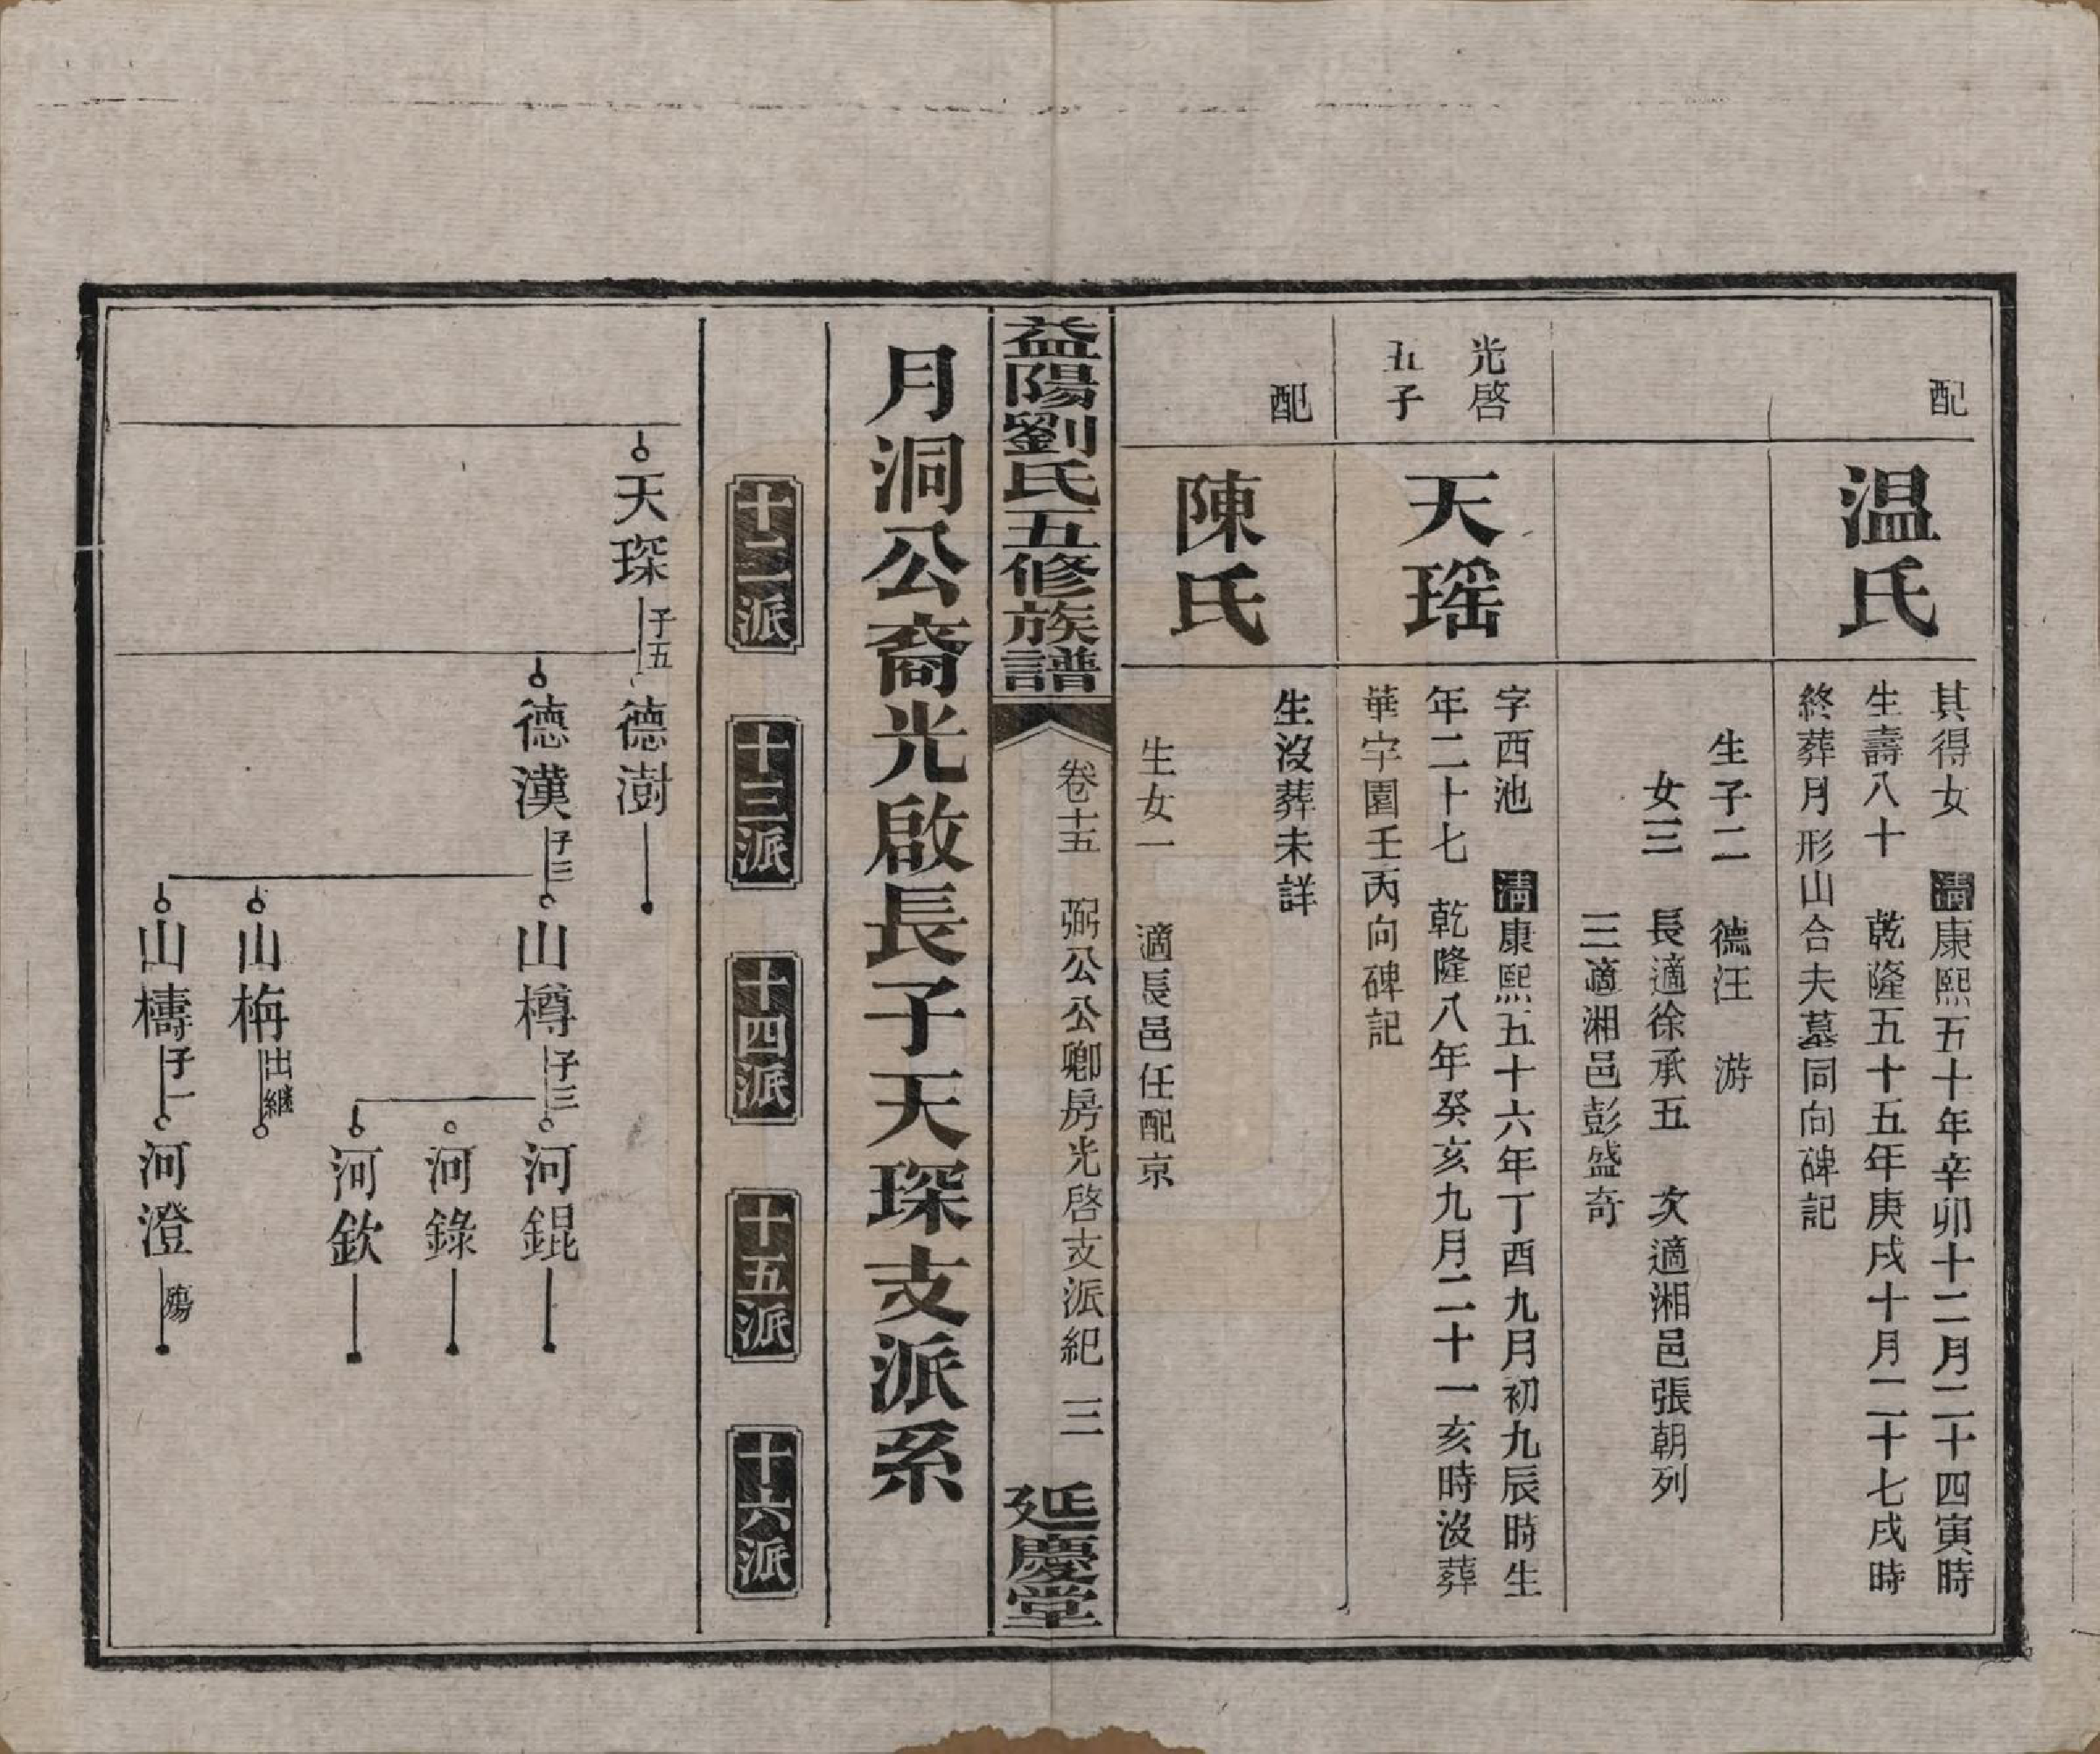 配
温氏
其得女 清康熙五十年辛卯十二月二十四寅時
生壽八十 乾隆五十五年庚戌十月二十七戌時
終葬月形山合夫墓同向碑記
生子二 德汪 游
女三 長適徐承五 次適湘邑張朝列
三適湘邑彭盛奇
光啓
五子
天瑶
字西池 清康熙五十六年丁酉九月初九辰時生
年二十七 乾隆八年癸亥九月二十一亥時没葬
華字園壬丙向碑記
配
陳氏
生没葬未詳
生女一 適長邑任配京
益陽劉氏五修族譜
卷十五 弼公公卿房光啓支派紀 三
延慶堂
月洞公裔光啟長子天琛支派系
十二派 十三派 十四派 十五派 十六派
天琛 子五 德澍
德漢 子三 山樽 子三 河錕
河錄
河欽
山栴 出繼
山檮 子一 河澄 殤